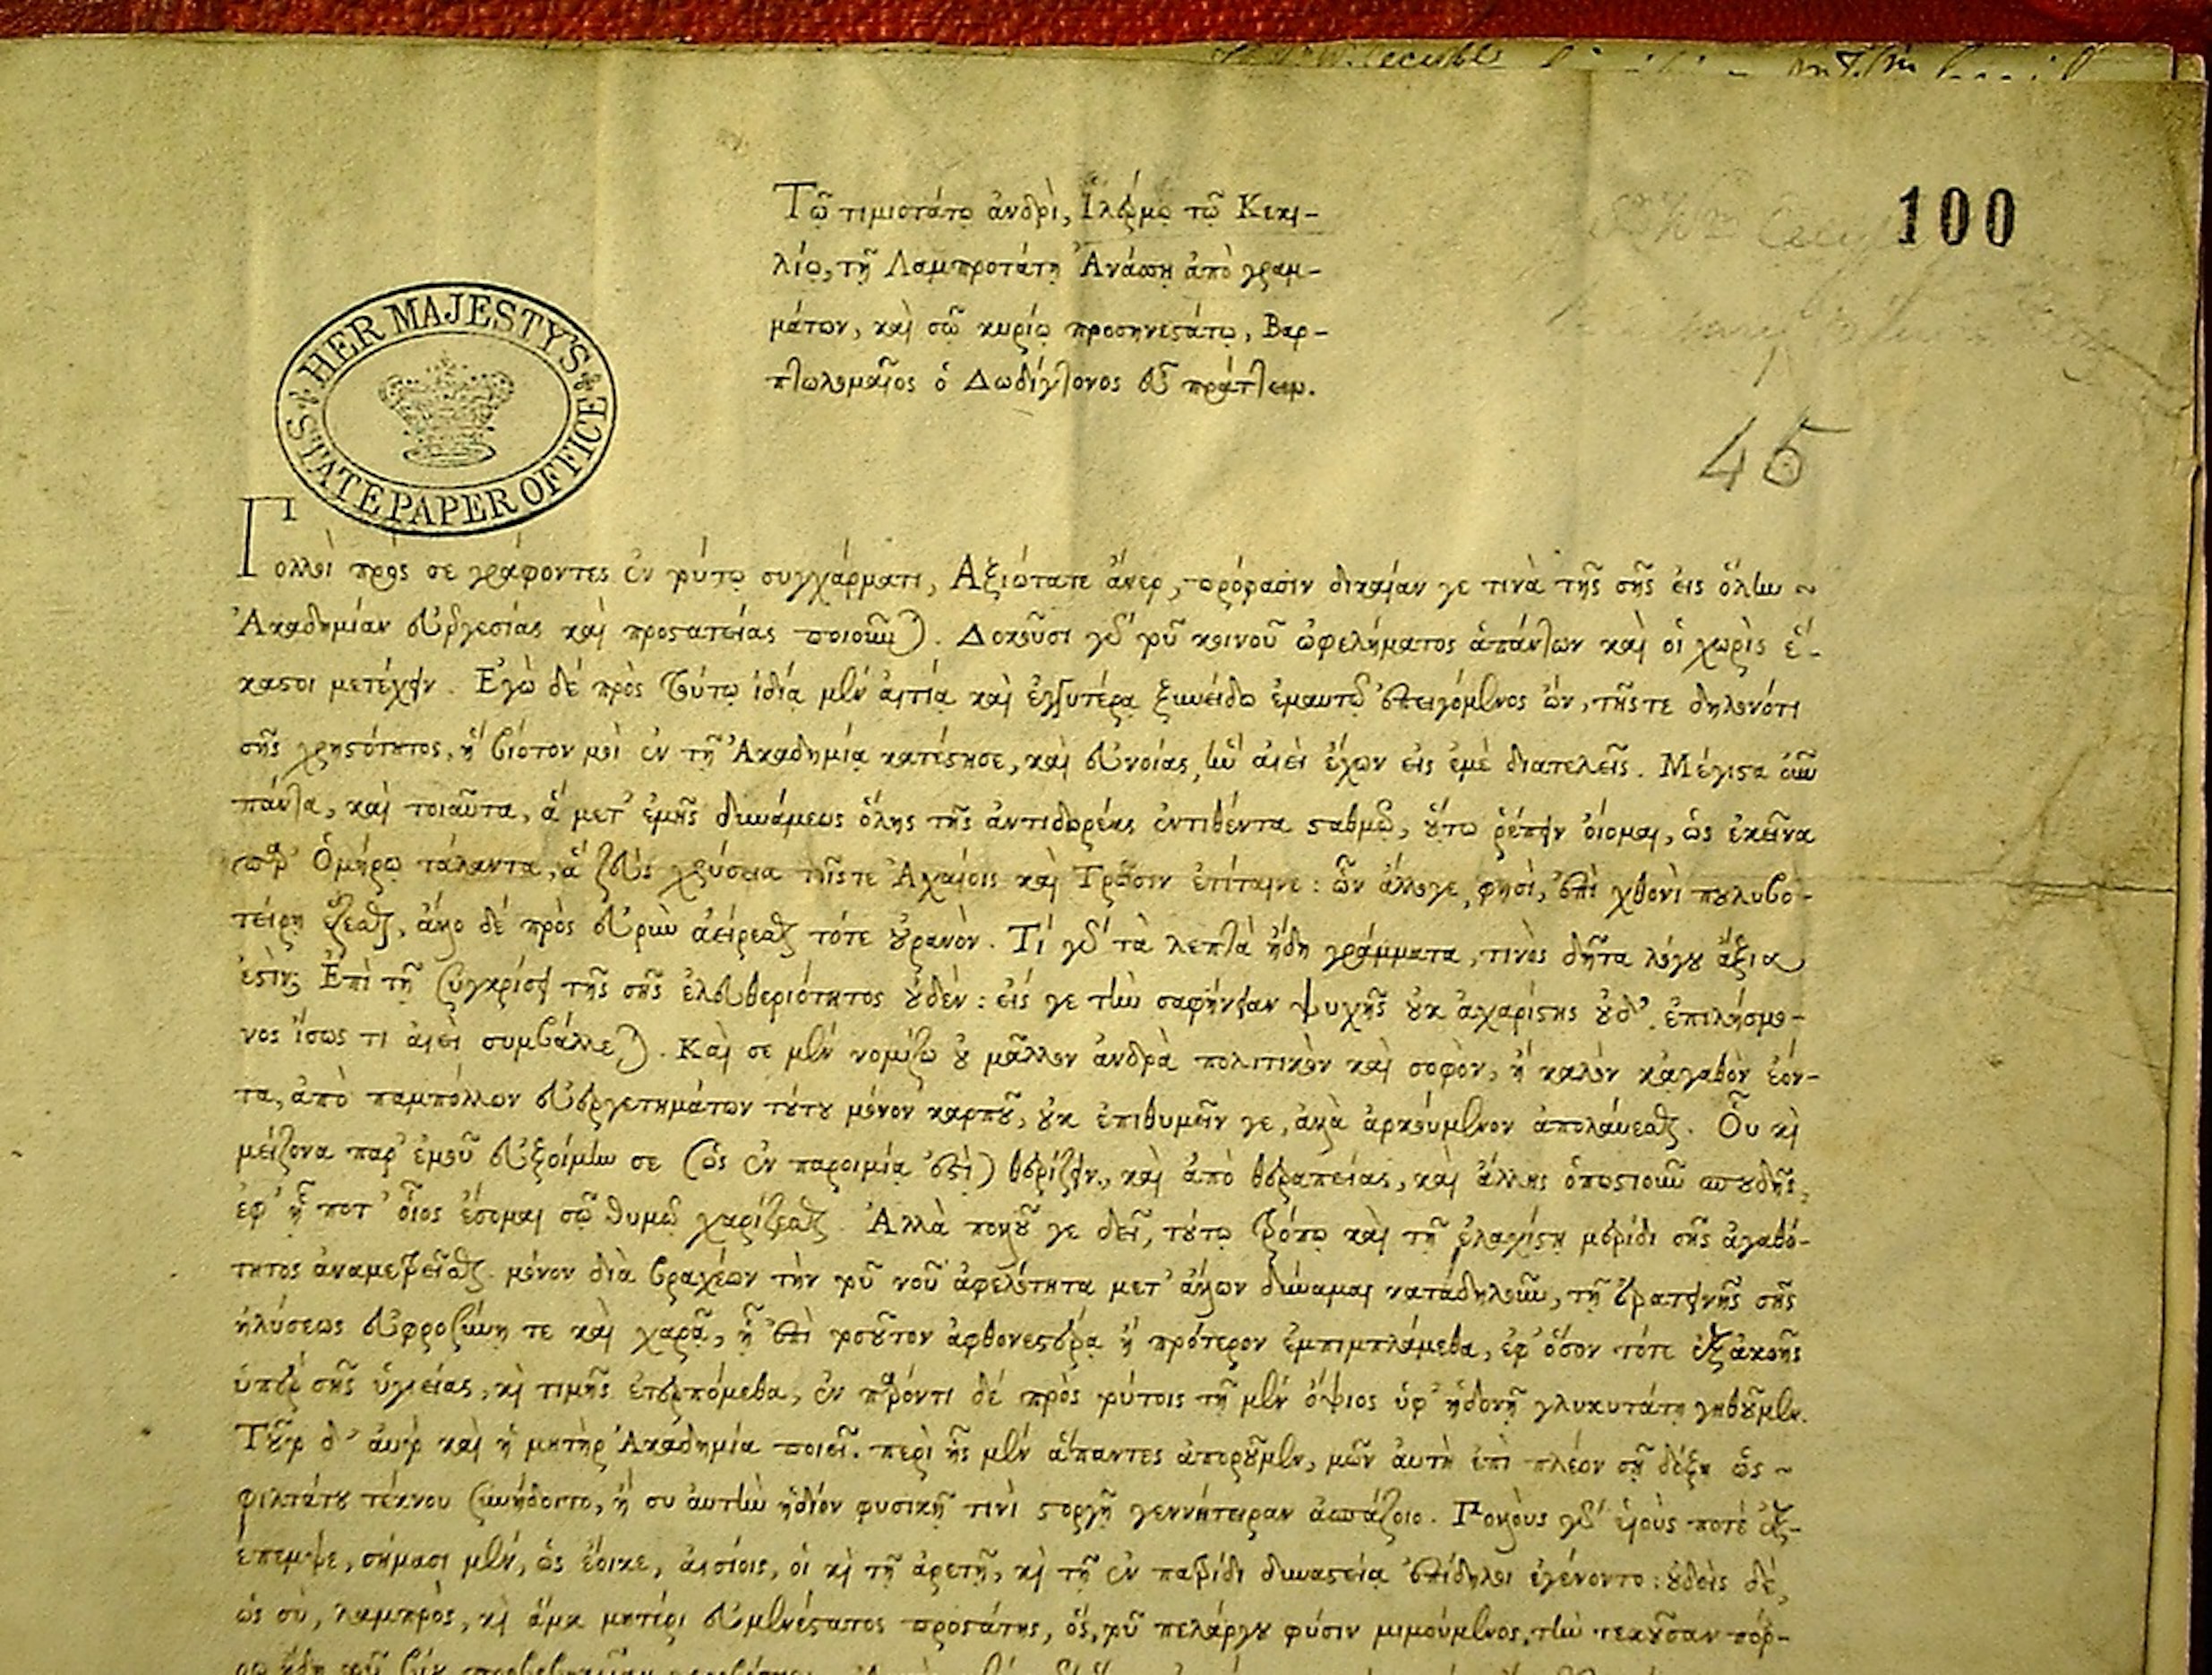 100
Τῷ τιμιοτάτῳ ἀνδρὶ, Ἰλέρμῳ τῷ Κεκι-
λίῳ, τῇ Λαμπροτάτῃ Ἀνάσσῃ ἀπὸ γραμ-
μάτων, καὶ σῷ κυρίῳ προσηνεστάτῳ, Βαρ-
πτωλομαῖος ὁ Δωδίγτονος εὖ πράττειν.
HER MAJESTY'S STATE PAPER OFFICE
45
Πολλοὶ πρός σε γράφοντες ἐν τούτῳ συγχάρματι, Ἀξιώτατε ἄνερ, πρόφασιν δικαίαν γε τινὰ τῆς σῆς εἰς ὅλην
Ἀκαδημίαν εὐεργεσίας καὶ προστατείας ποιοῦνται. Δοκοῦσι γὰρ τοῦ κοινοῦ ὠφελήματος ἁπάντων καὶ οἱ χωρὶς ἕ-
καστοι μετέχειν. Ἐγὼ δὲ πρὸς τούτῳ ἰδίᾳ μὲν αἰτίᾳ καὶ ἐγγυτέρᾳ ξυνείδω ἐμαυτῷ ἐπειγόμενος ὢν, τῆς τε δηλονότι
σῆς χρηστότητος, ἣ βίοτον μοὶ ἐν τῇ Ἀκαδημίᾳ κατέστησε, καὶ εὐνοίας, ἣν αἰεὶ ἔχων εἰς ἐμὲ διατελεῖς. Μέγιστα οὖν
πάντα, καὶ τοιαῦτα, ἃ μετ' ἐμῆς δυνάμεως ὅλης τῆς ἀντιδωρεᾶς ἐντιθέντα σταθμῷ, οὕτω ῥέπειν οἴομαι, ὡς ἐκεῖνα
παρ' Ὁμήρῳ τάλαντα, ἃ Ζεὺς χρύσεια τοῖς τε Ἀχαιοῖς καὶ Τρωσὶν ἐπίταινε: ὧν ἄλλογε, φησὶ, ἐπὶ χθονὶ πουλυβο-
τείρῃ ἕζεσθαι, ἄλλο δὲ πρὸς εὐρὺν ἀείρεσθαι τότε οὐρανόν. Τί γὰρ τὰ λεπτὰ ἤδη γράμματα, τινὸς δῆτα λόγου ἄξια
ἐστίν; Ἐπὶ τῇ συγκρίσει τῆς σῆς ἐλευθεριότητος οὐδὲν: εἰς γε τὴν σαφήνειαν ψυχῆς οὐκ ἀχαρίστης οὐδ' ἐπιλήσμο-
νος ἴσως τι αἰεὶ συμβάλλεται. Καὶ σε μὲν νομίζω οὐ μᾶλλον ἄνδρα πολιτικὸν καὶ σοφὸν, ἢ καλὸν κἀγαθὸν ἐόν-
τα, ἀπὸ παμπόλλων εὐεργετημάτων τούτου μόνον καρποῦ, οὐκ ἐπιθυμεῖν γε, ἀλλὰ ἀρκούμενον ἀπολαύεσθαι. Οὐ καὶ
μείζονα παρ' ἐμοῦ εὐξοίμην σε (ὡς ἐν παροιμίᾳ ἐστὶ) θερίζειν, καὶ ἀπὸ θεραπείας, καὶ ἄλλης ὁπωστιοῦν σπουδῆς,
ἐφ' ᾗ ποτ' οἷος ἔσομαι σῷ θυμῷ χαρίζεσθαι. Ἀλλὰ πολλοῦ γε δεῖ, τούτῳ τρόπῳ καὶ τῇ ἐλαχίστῃ μερίδι σῆς ἀγαθό-
τητος ἀναμετρεῖσθαι. μόνον διὰ βραχέων τὴν τοῦ νοῦ ἀφελότητα μετ' ἄλλων δύναμαι καταδηλοῦν, τῇ τρατεινῆς σῆς
ἠλύσεως εὐφροσύνῃ τε καὶ χαρᾷ, ᾗ ἐπὶ τοσοῦτον ἀφθονεστέρᾳ ἢ πρότερον ἐμπιμπλάμεθα, ἐφ' ὅσον τότε ἐξ ἀκοῆς
ὑπὲρ σῆς ὑγιείας, καὶ τιμῆς ἐτερπόμεθα, ἐν παρόντι δὲ πρὸς τούτοις τῇ μὲν ὄψιος ὑφ' ἡδονῇ γλυκυτάτῃ γηθοῦμεν.
Τοῦτο δ' αὐτὸ καὶ ἡ μητὴρ Ἀκαδημία ποιεῖ. περὶ ἧς μὲν ἅπαντες ἀποροῦμεν, μῶν αὐτὴ ἐπὶ πλέον σῇ δόξῃ ὡς
φιλτάτου τέκνου συνήδοιτο, ἢ συ αὐτὴν ἥδιον φυσικῇ τινὶ στοργῇ γεννήτειραν ἀσπάζοιο. Πολλοὺς γὰρ υἱοὺς ποτὲ ἐξ-
έπεμψε, σήμασι μὲν, ὡς ἔοικε, αἰσίοις, οἱ καὶ τῇ ἀρετῇ, καὶ τῇ ἐν πατρίδι δυναστείᾳ ἐπίδηλοι ἐγένοντο: οὐδεὶς δὲ,
ὡς σὺ, λαμπρὸς, καὶ ἅμα μητέρι εὐμενέστατος προστάτης, ὃς, τοῦ πελάργου φύσιν μιμούμενος, τὴν τεκοῦσαν πόρ-